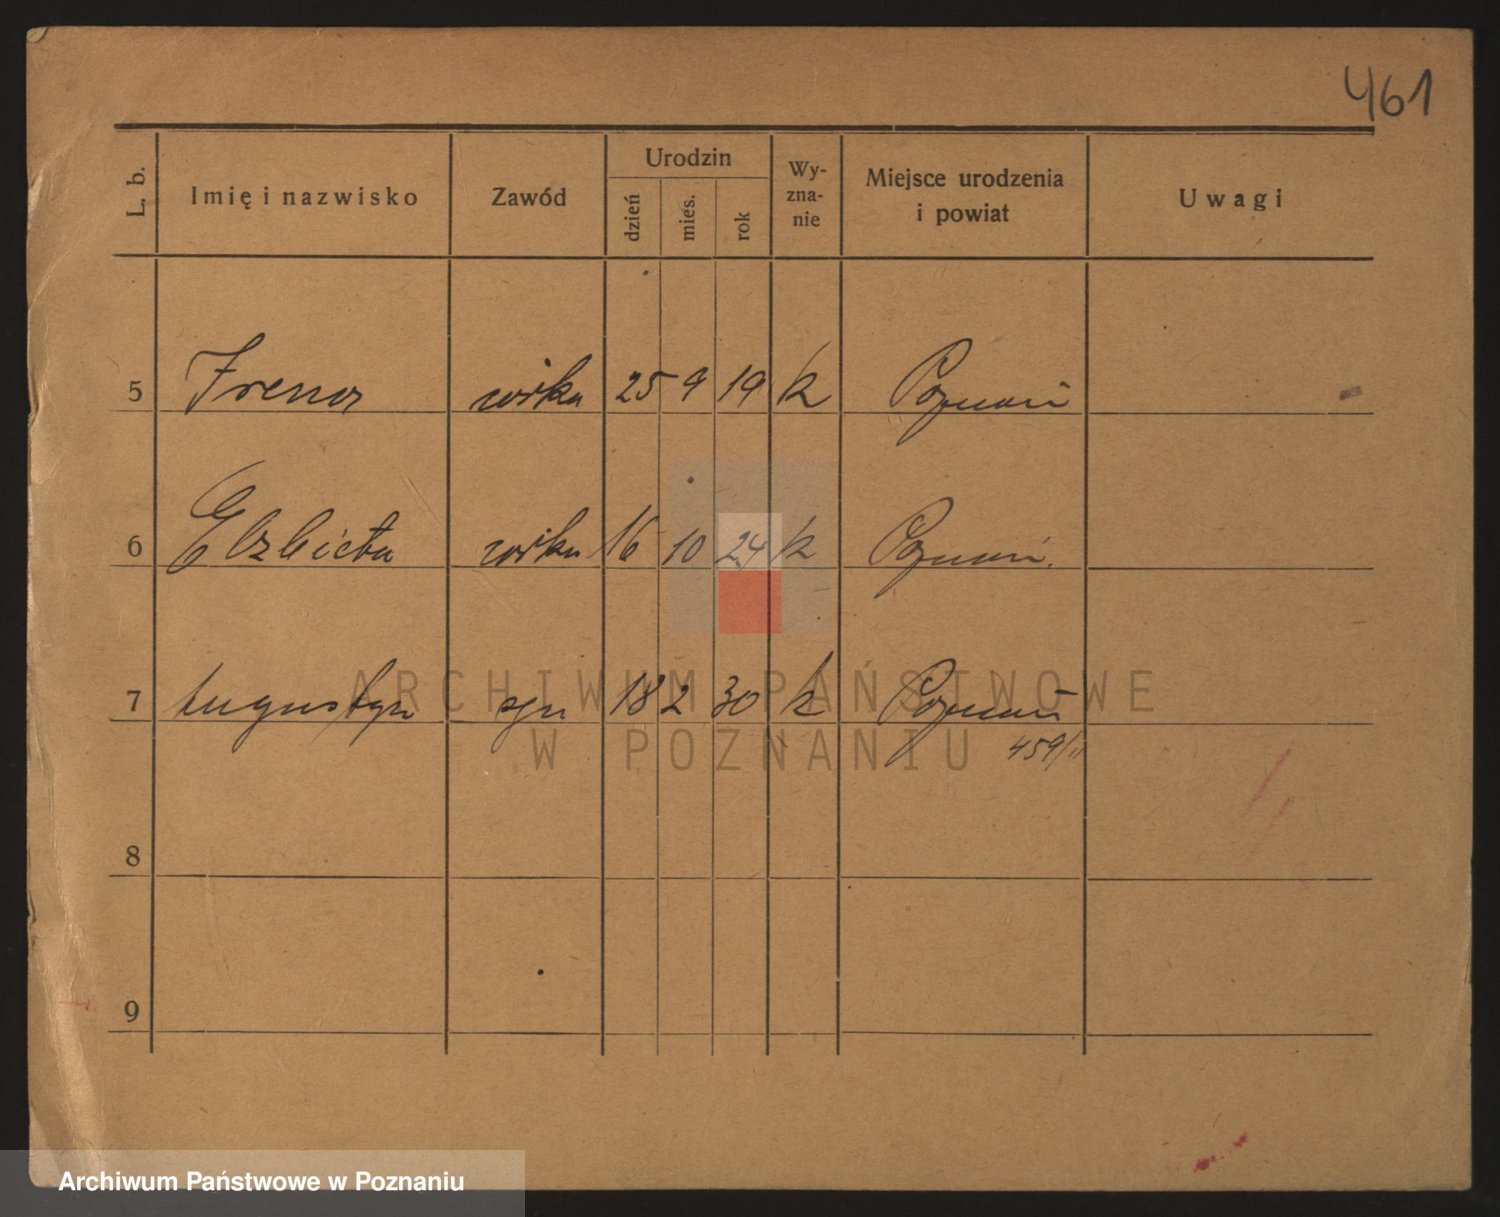 461
L. b. Imię i nazwisko Zawód Urodzin dzień mies. rok Wy-zna-nie Miejsce urodzenia i powiat Uwagi
5 Irena córka 25 9 19 k Poznań
6 Elżbieta córka 16 10 24 k Poznań.
7 Augustyn syn 18 2 30 k Poznań
459/11
8
9
ARCHIWUM PAŃSTWOWE
W POZNANIU
Archiwum Państwowe w Poznaniu